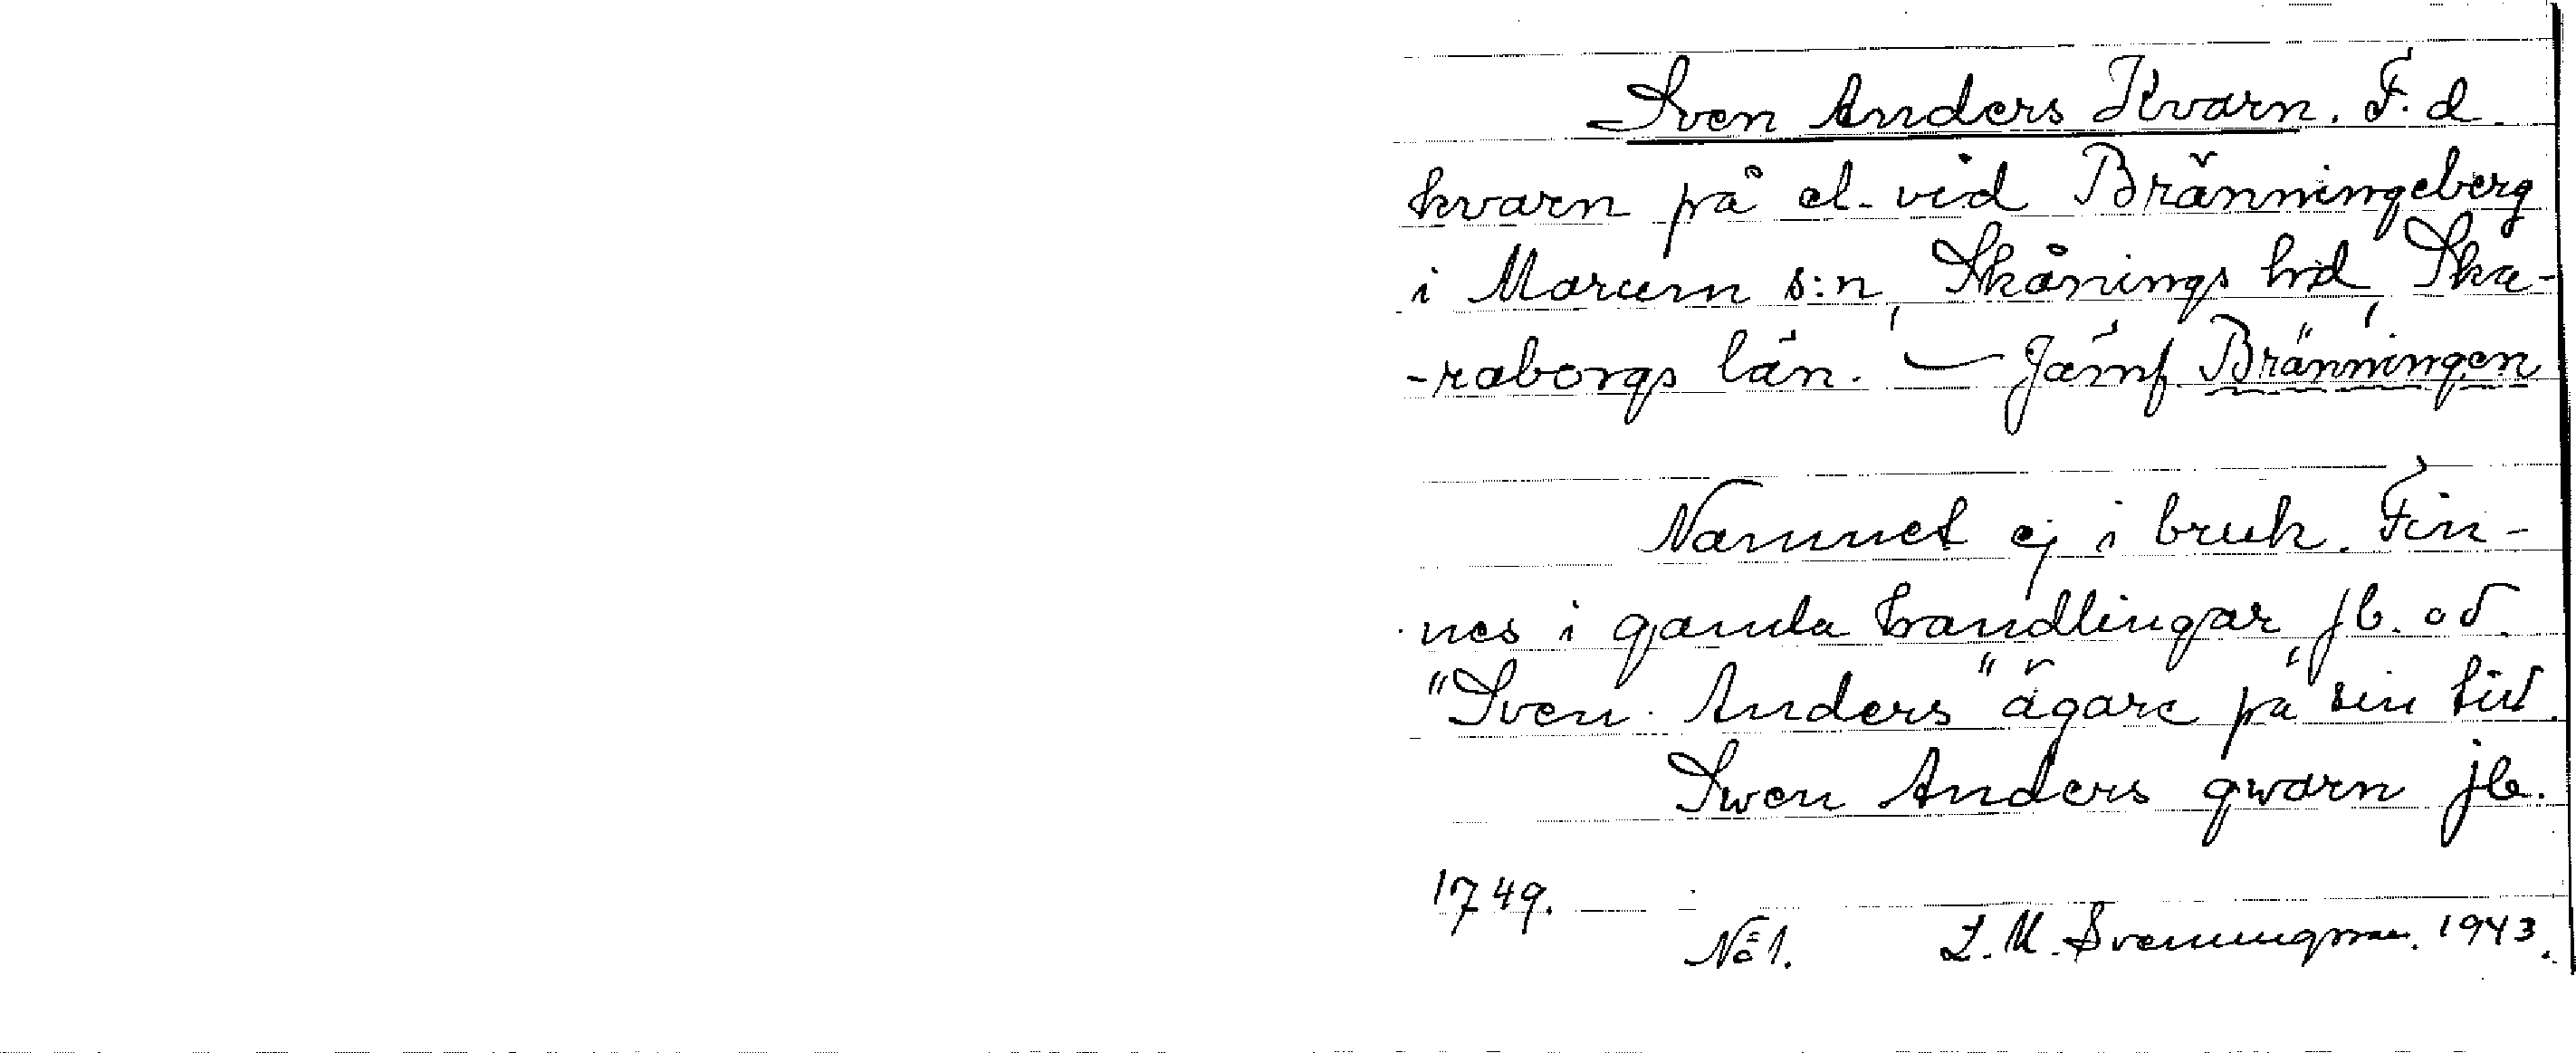 Sven Anders Kvarn. F. d.
kvarn på el. vid Bränningeberg
i Marum s:n, Skånings hd, Ska-
-raborgs län. — Jämf. Bränningen
Namnet ej i bruk. Fin-
nes i gamla handlingar, jb. o d.
"Sven Anders" ägare på sin tid.
Swen Anders qwarn jb.
1749.
No 1. L. M. Svenungsson. 1943.